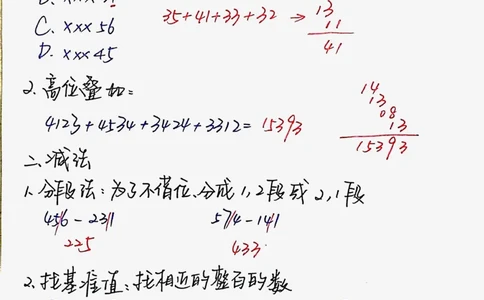 C. xxx 56
D. xxx 45
35+41+33+32 → 13
11
41
2.高位叠加:
4123+4534+3424+3312= 15393
14
13
08
13
15393
二、减法
1.分段法:为了不借位、分成1,2段或2,1段
456-231
225
574-141
433
2.找基准值:找相近的整百的数